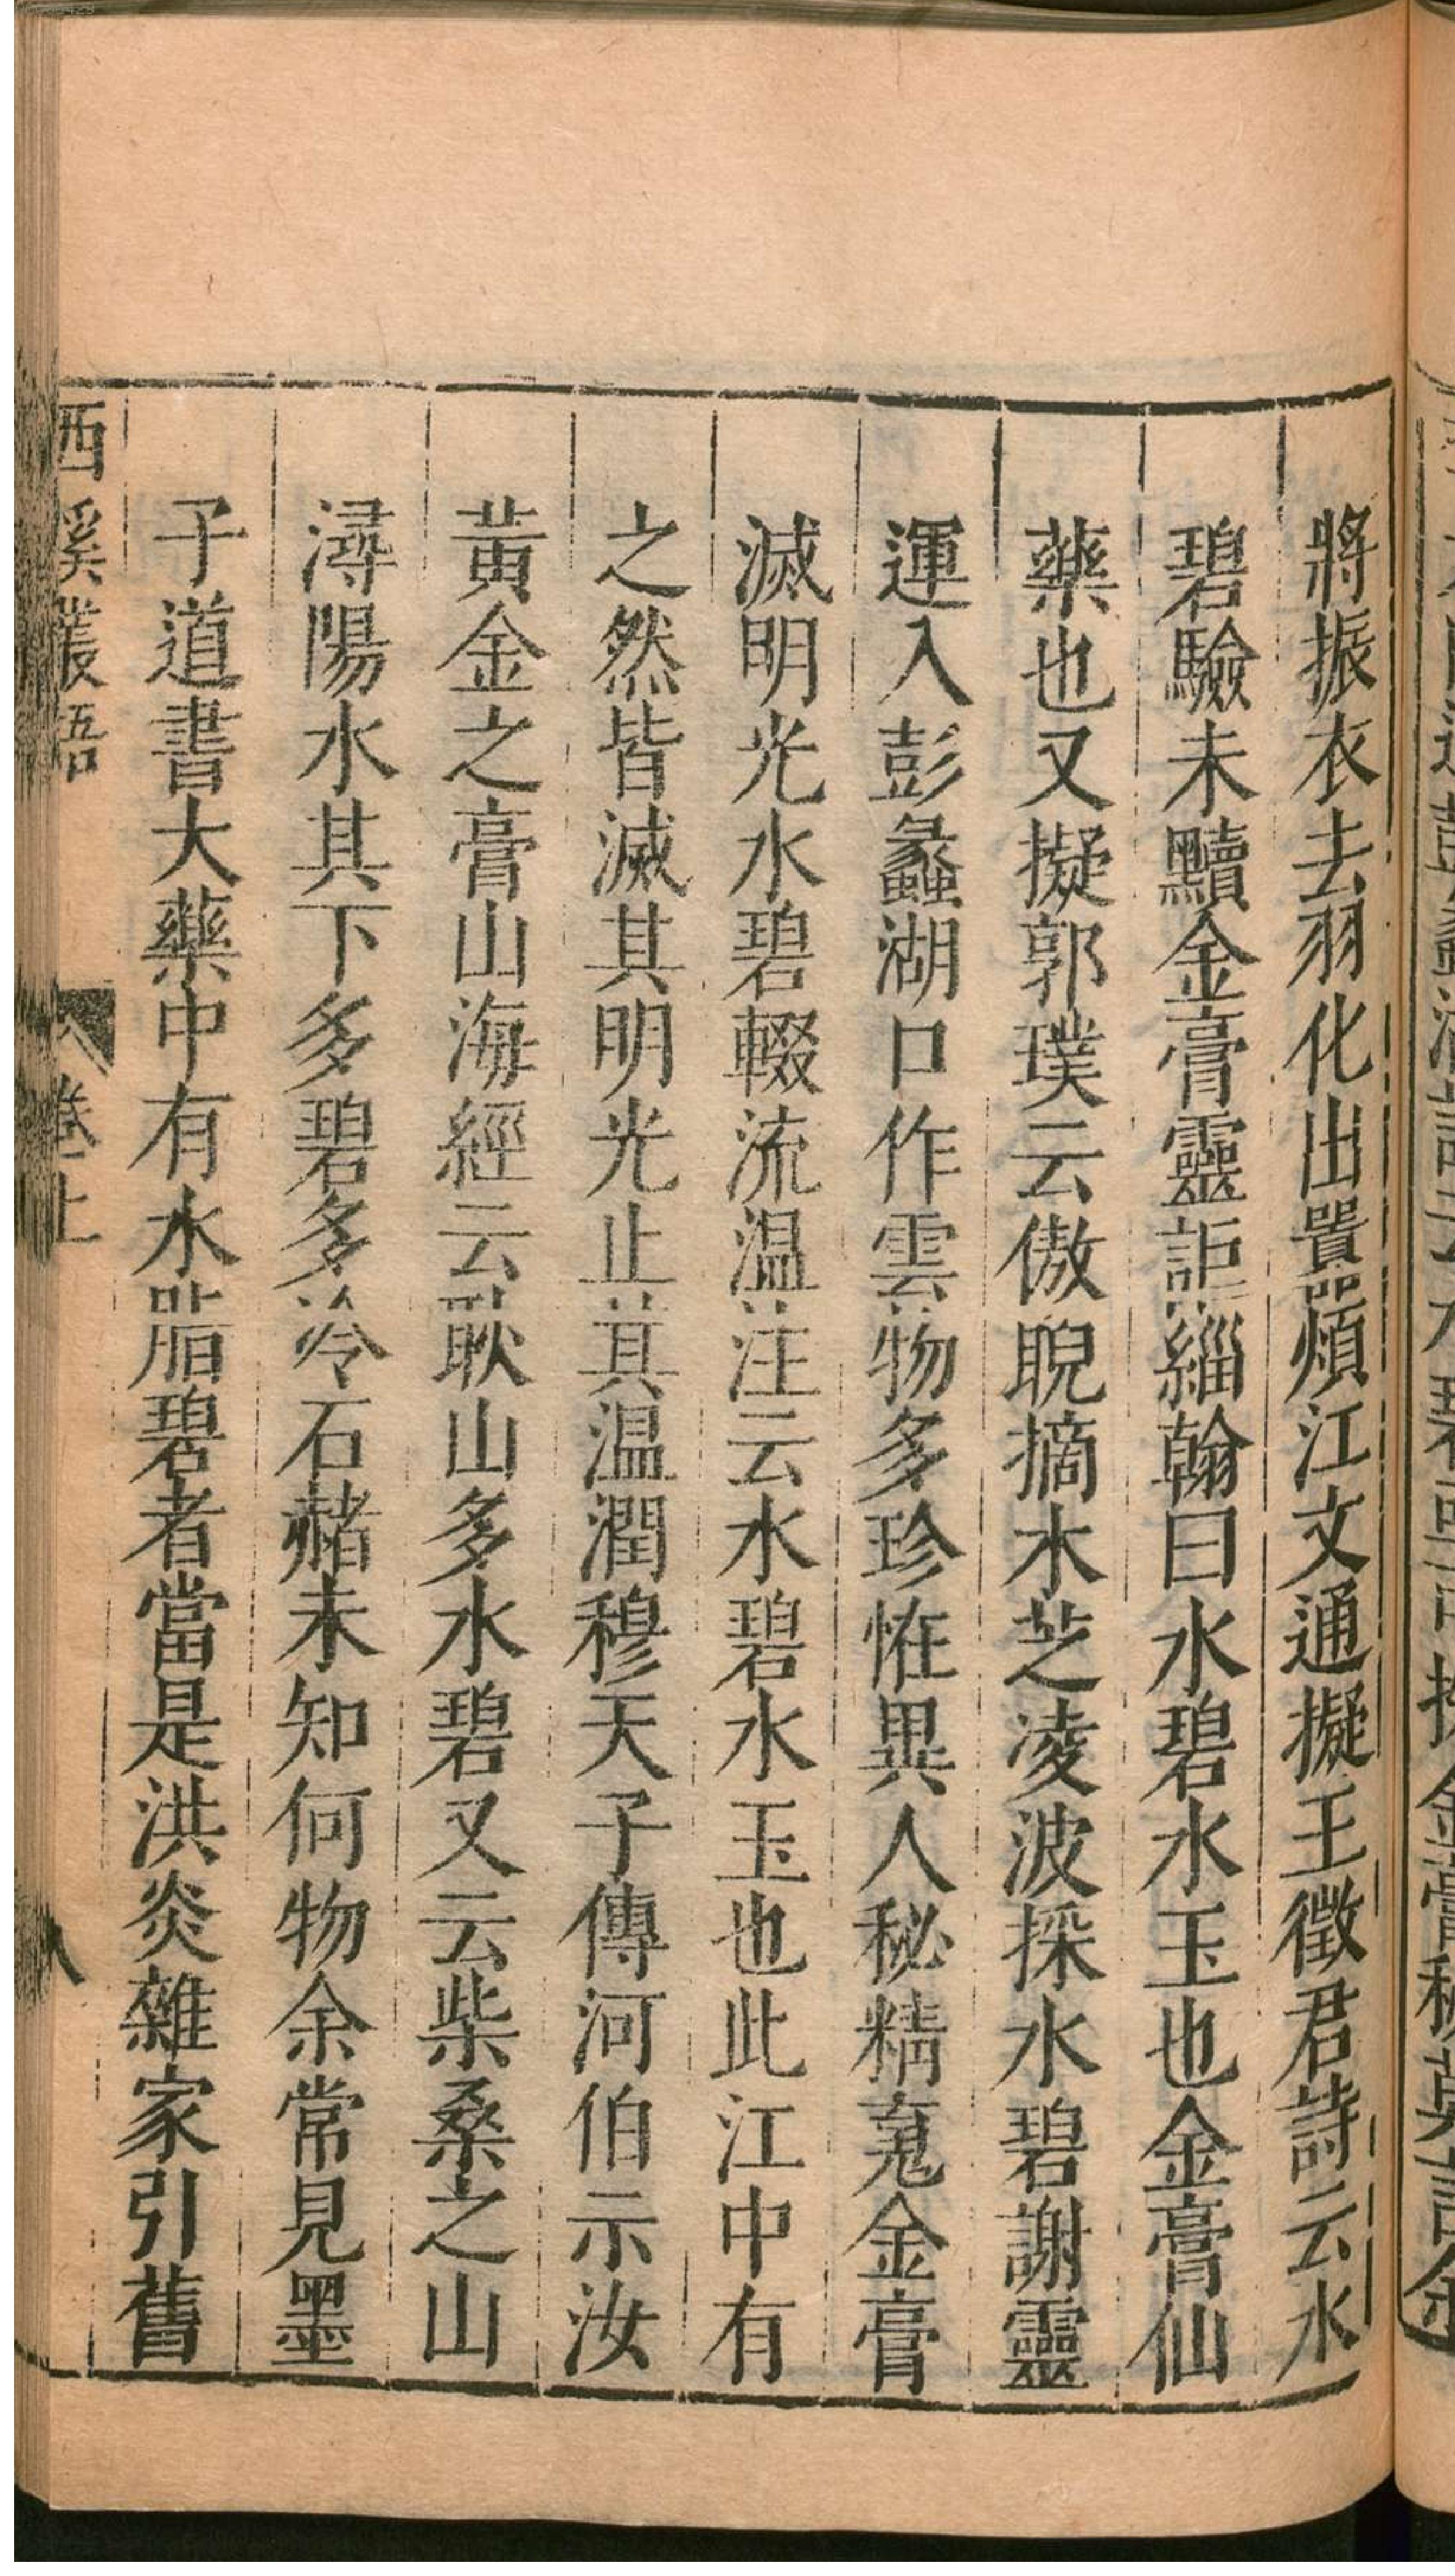 將振衣去羽化出嚻煩江文通擬王徵君詩云水
碧驗未黷金膏靈詎緇翰曰水碧水玉也金膏仙
藥也又擬郭璞云傲睨摘木芝凌波採水碧謝靈
運入彭蠡湖口作雲物多珍恠異人秘精䰟金膏
滅明光水碧輟流温注云水碧水玉也此江中有
之然皆滅其明光止其温潤穆天子傳河伯示汝
黃金之膏山海經云耿山多水碧又云柴桑之山
潯陽水其下多碧多冷石赭未知何物余常見墨
子道書大藥中有水脂碧者當是洪炎雜家引舊
西溪叢語
卷上
八